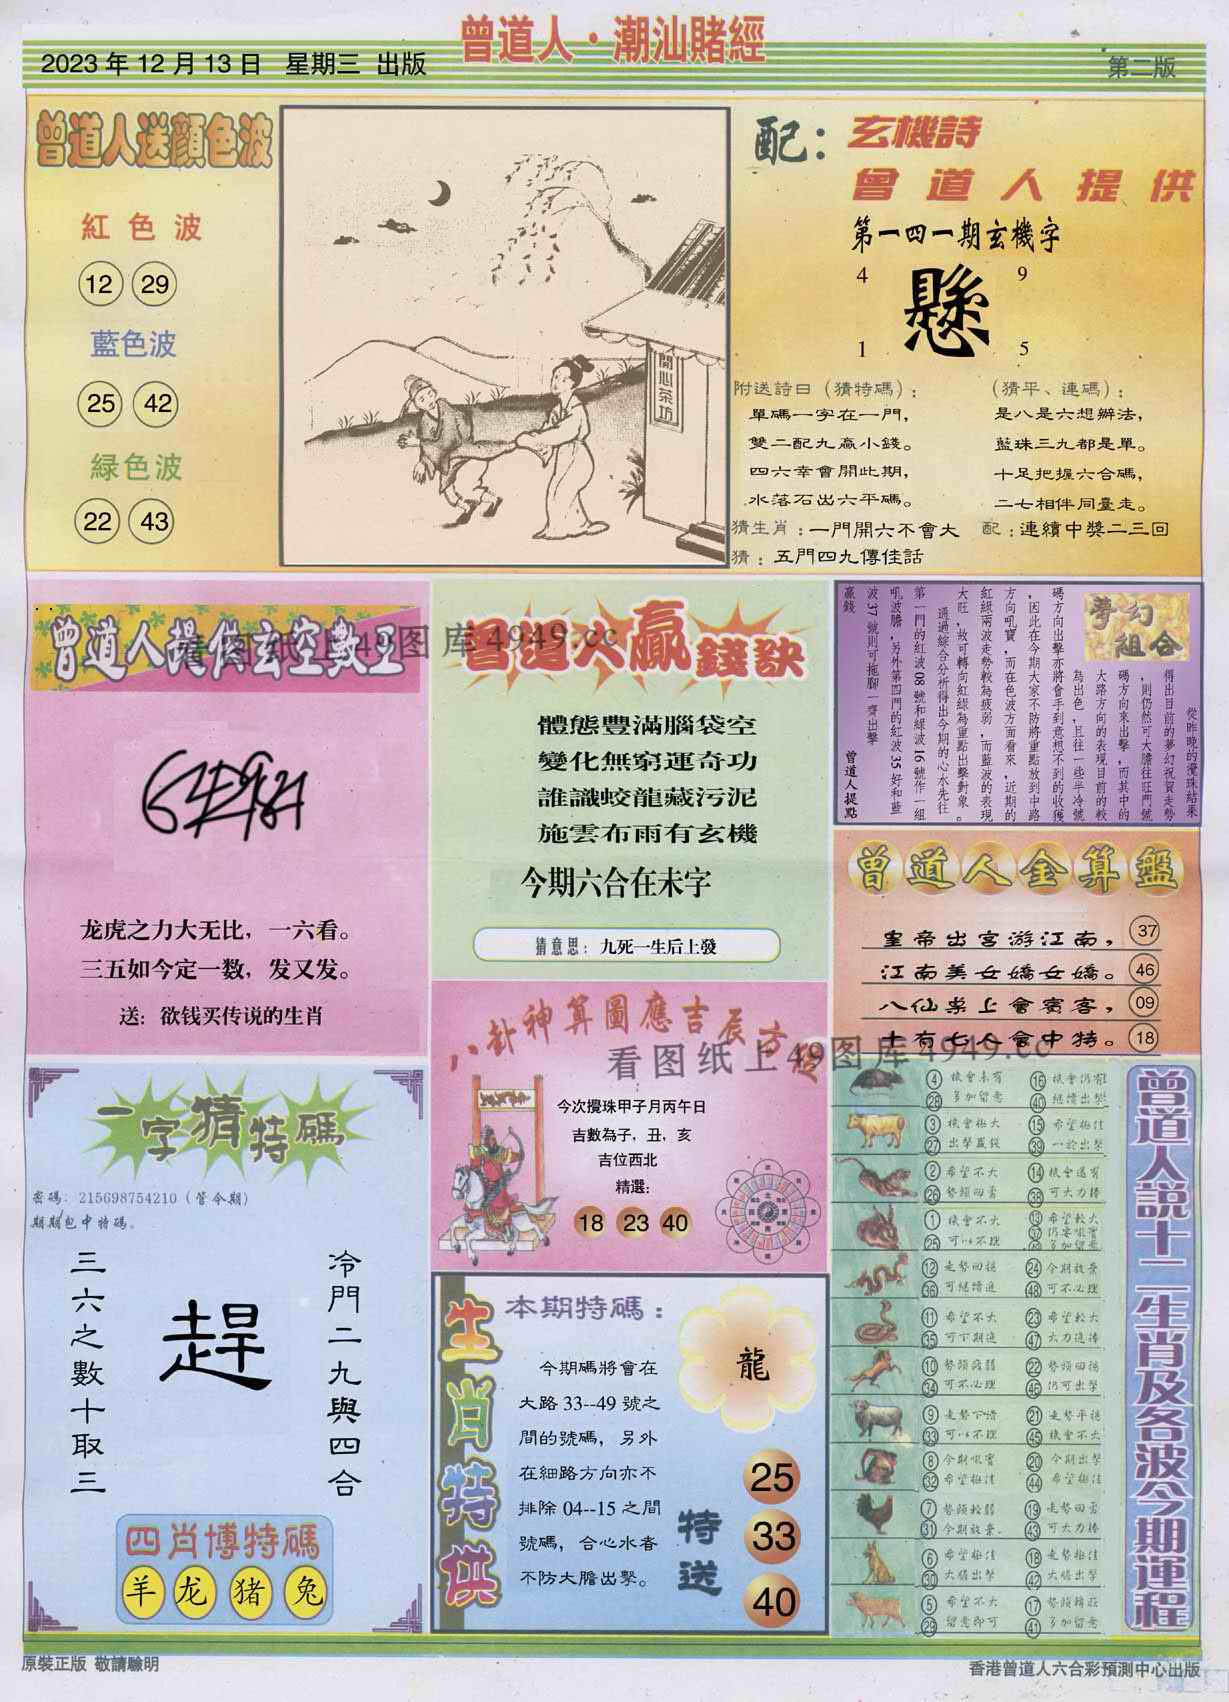 曾道人·潮汕賭經
2023年12月13日 星期三 出版
第二版
曾道人送顏色波
紅色波
12 29
藍色波
25 42
綠色波
22 43
開心茶坊
配：玄機詩
曾道人提供
第一四一期玄機字
4 9
懸
1 5
附送詩曰（猜特碼）：
單碼一字在一門，
雙二配九贏小錢。
四六幸會開此期，
水落石出六平碼。
（猜平、連碼）：
是八是六想辦法，
藍珠三九都是單。
十足把握六合碼，
二七相伴同臺走。
猜生肖：一門開六不會大
配：連續中獎二三回
猜：五門四九傳佳話
曾道人提供玄空數王
看图纸上49图库4949.cc
龙虎之力大无比，一六看。
三五如今定一数，发又发。
送：欲钱买传说的生肖
曾道人贏錢訣
體態豐滿腦袋空
變化無窮運奇功
誰識蛟龍藏污泥
施雲布雨有玄機
今期六合在未字
猜意思：九死一生后上發
夢幻組合
從昨晚的攪珠結果
得出目前的夢幻祝賀走勢
，則仍然可大膽往旺門號
碼方向來出擊，而其中的
大路方向的表現目前的較
為出色，且往一些半冷號
碼方向出擊亦將會手到意想不到的收獲
，因此在今期大家不防將重點放到中路
方向吼寶，而在色波方面看來，近期的
紅綠兩波走勢較為疲弱，而藍波的表現
大旺，故可轉向紅綠為重點出擊對象。
通過綜合分析得出今期的心水先往
第一門的紅波08號和綠波16號作一組
吼波膽，另外第四門的紅波35好和藍
波37號則可拖腳一齊出擊
贏錢
曾道人提點
曾道人金算盤
皇帝出宮游江南， 37
江南美女嬌女嬌。 46
八仙桌上會賓客， 09
十有七人會中特。 18
八卦神算圖應吉辰方位
看图纸上49图库4949.cc
今次攪珠甲子月丙午日
吉數為子，丑，亥
吉位西北
精選：
18 23 40
一字猜特碼
密碼：215698754210（管今期）
期期包中特碼。
冷門二九與四合
趕
三六之數十取三
四肖博特碼
羊 龙 猪 兔
生肖特供
本期特碼：
龍
今期碼將會在
大路33--49號之
間的號碼，另外
在細路方向亦不
排除04--15之間
號碼，合心水者
不防大膽出擊。
特送
25
33
40
曾道人說十二生肖及各波今期運程
4 機會未有 16 機會仍有
28 多加留意 40 繼續出擊
3 機會極大 15 希望極佳
27 出擊贏錢 39 一於出擊
2 希望不大 14 機會還有
26 勢頭回勇 38 可大力捧
1 機會不大 13 希望較大
25 可以不理 37 仍要吼實
49 多加留意
12 走勢回穩 24 今期放棄
36 可繼續追 48 可不必理
11 希望不大 23 希望較大
35 可下期追 47 大力追捧
10 勢頭疲弱 22 勢頭回穩
34 可不必理 46 仍可出擊
9 走勢下滑 21 走勢平穩
33 可以不理 45 機會不大
8 今期吼實 20 今期出擊
32 希望極佳 44 希望極佳
7 勢頭較弱 19 走勢回勇
31 今期放棄. 43 可大力捧
6 希望極佳 18 走勢極佳
30 大膽出擊 42 大膽出擊
5 希望不大 17 勢頭轉旺
29 留意即可 41 多加留意
原裝正版 敬請驗明
香港曾道人六合彩預測中心出版